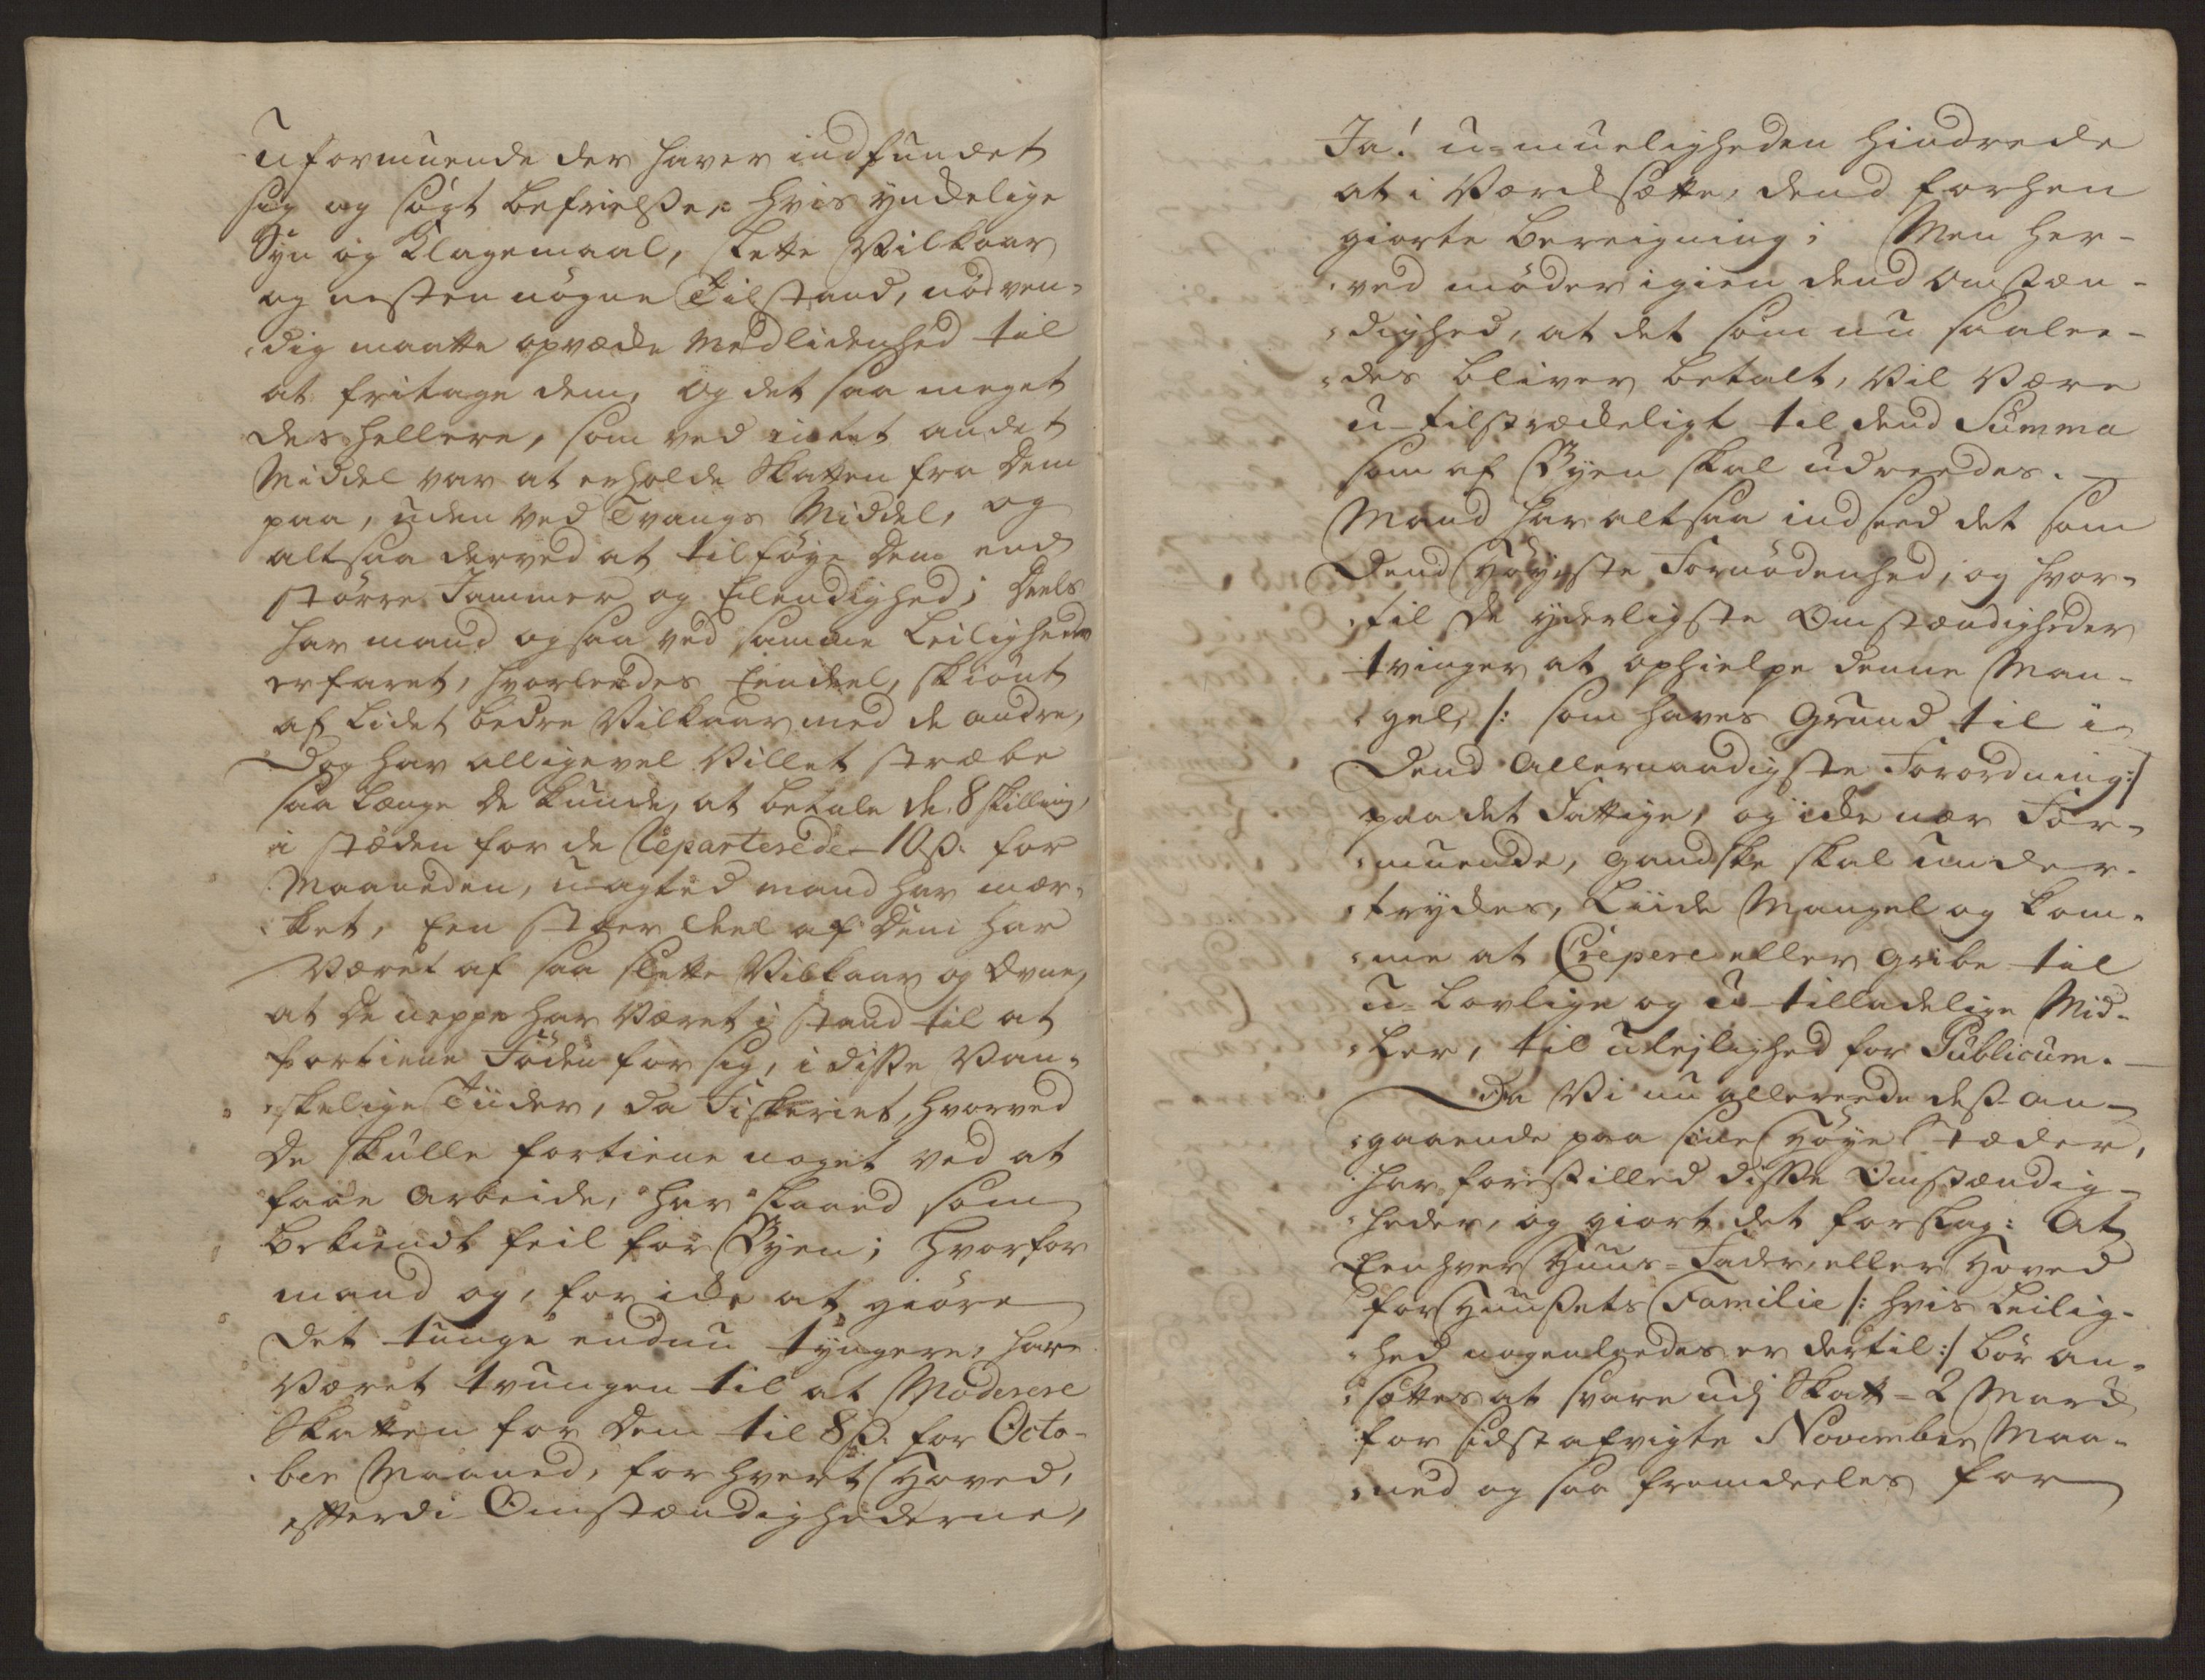 Uformuende der haver indfundet
sig og søgt befrielse, hvis ynkelige
Syn og Klagemaal, slette Vilkaar
og nesten nøgne Tilstand, nødven-
dig maatte opvæcke Medlidenhed til
at fritage dem, og det saa meget
des hellere, som ved intet andet
Middel var at erholde Skatten fra dem
paa, uden ved Tvangs Middel, og
altsaa derved at tilføye dem end
større Jammer og Elendighed; Deels
har mand ogsaa ved samme Leilighed
erfaret, hvorleedes Eendeel, skiønt
af Lidet bedre Vilkaar med de andre,
Dog har alligevel Villet stræbe
saa længe de kunde, at betale de 8 skilling,
i stæden for de reparterede 10 ß. for
Maaneden, uagted mand har mær-
ket, Een stoer deel af dem har
Været af saa slette Vilkaar og Evne,
at de neppe har Været i stand til at
fortiene Føden for sig, i disse Van-
skelige Tiider, da Fiskeriet, hvorved
de skulle fortiene noget ved at
faae Arbeide, har slaaed som
bekiendt feil for Byen; hvorfor
mand og, for icke at giøre
det tunge endnu tyngere, har
Været tvungen til at Moderere
Skatten for dem til 8 ß. for Octo-
ber Maaned, for hvert Hoved,
efterdi Omstændighederne,
Ja! u-mueligheden hindrede
at i Værcksætte, dend forhen
giorte bereigning; Men her-
ved møder igien dend Omstæn-
dighed, at det som nu saalee-
des bliver betalt, Vil Være
u-tilstræckeligt til dend Summa
som af Byen skal udreedes.
Mand har altsaa indseed det som
Dend Høyeste Fornødenhed, og hvor-
til de yderligste Omstændigheder
tvinger at ophielpe denne Man-
gel, /: som haves Grund til i
Dend Allernaadigste Forordning :/
paa det Fattige, og icke nær For-
muende, gandske skal under-
trykkes, Liide Mangel og kom-
me at Crepere eller gribe til
u-lovlige og u-tilladelige Mid-
ler, til ulejlighed for Publicum.
Da Vi nu allereede dess an-
gaaende paa sine Høye Stæder,
har forestilled disse Omstændig-
heder, og giort det forslag: At
Een hver Huus-Fader, eller Hoved
for Huusets Familie /: hvis Leilig-
hed nogenleedes er dertil :/ bør an-
sættes at svare udj Skatt = 2 Marck
for sidst afvigte November Maa-
ned og saa fremdeeles for